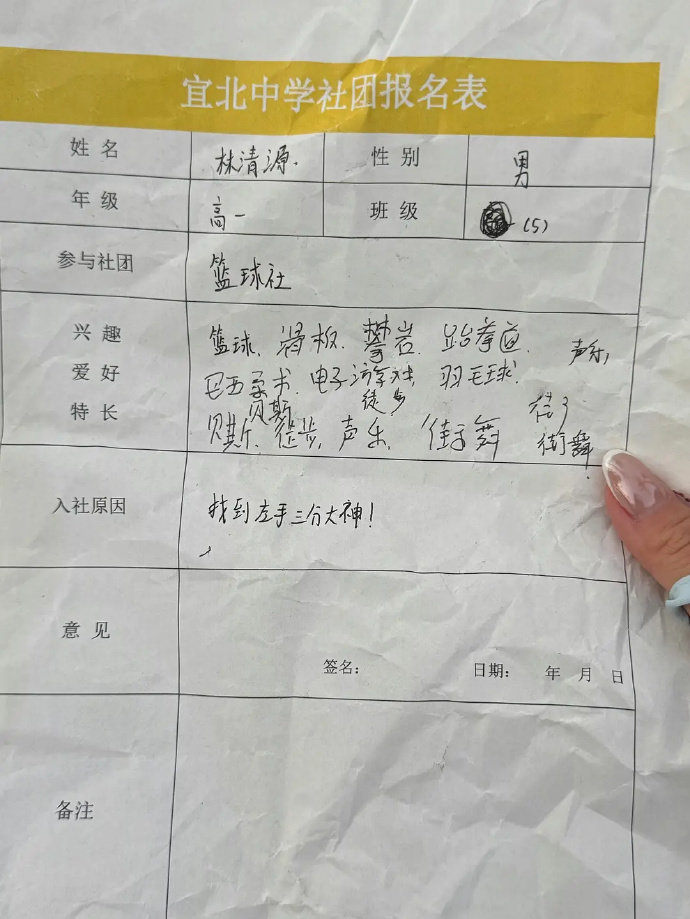 宜北中学社团报名表
姓名 林清源. 性别 男
年级 高一 班级 (5)
参与社团 篮球社
兴趣 篮球. 滑板. 攀岩. 跆拳道. 声乐,
爱好 巴西柔术. 电子游戏 羽毛球.
贝斯 徒步 街
特长 贝斯. 徒步. 声乐. 街舞 街舞
入社原因 找到左手三分大神!
意见
签名: 日期: 年 月 日
备注